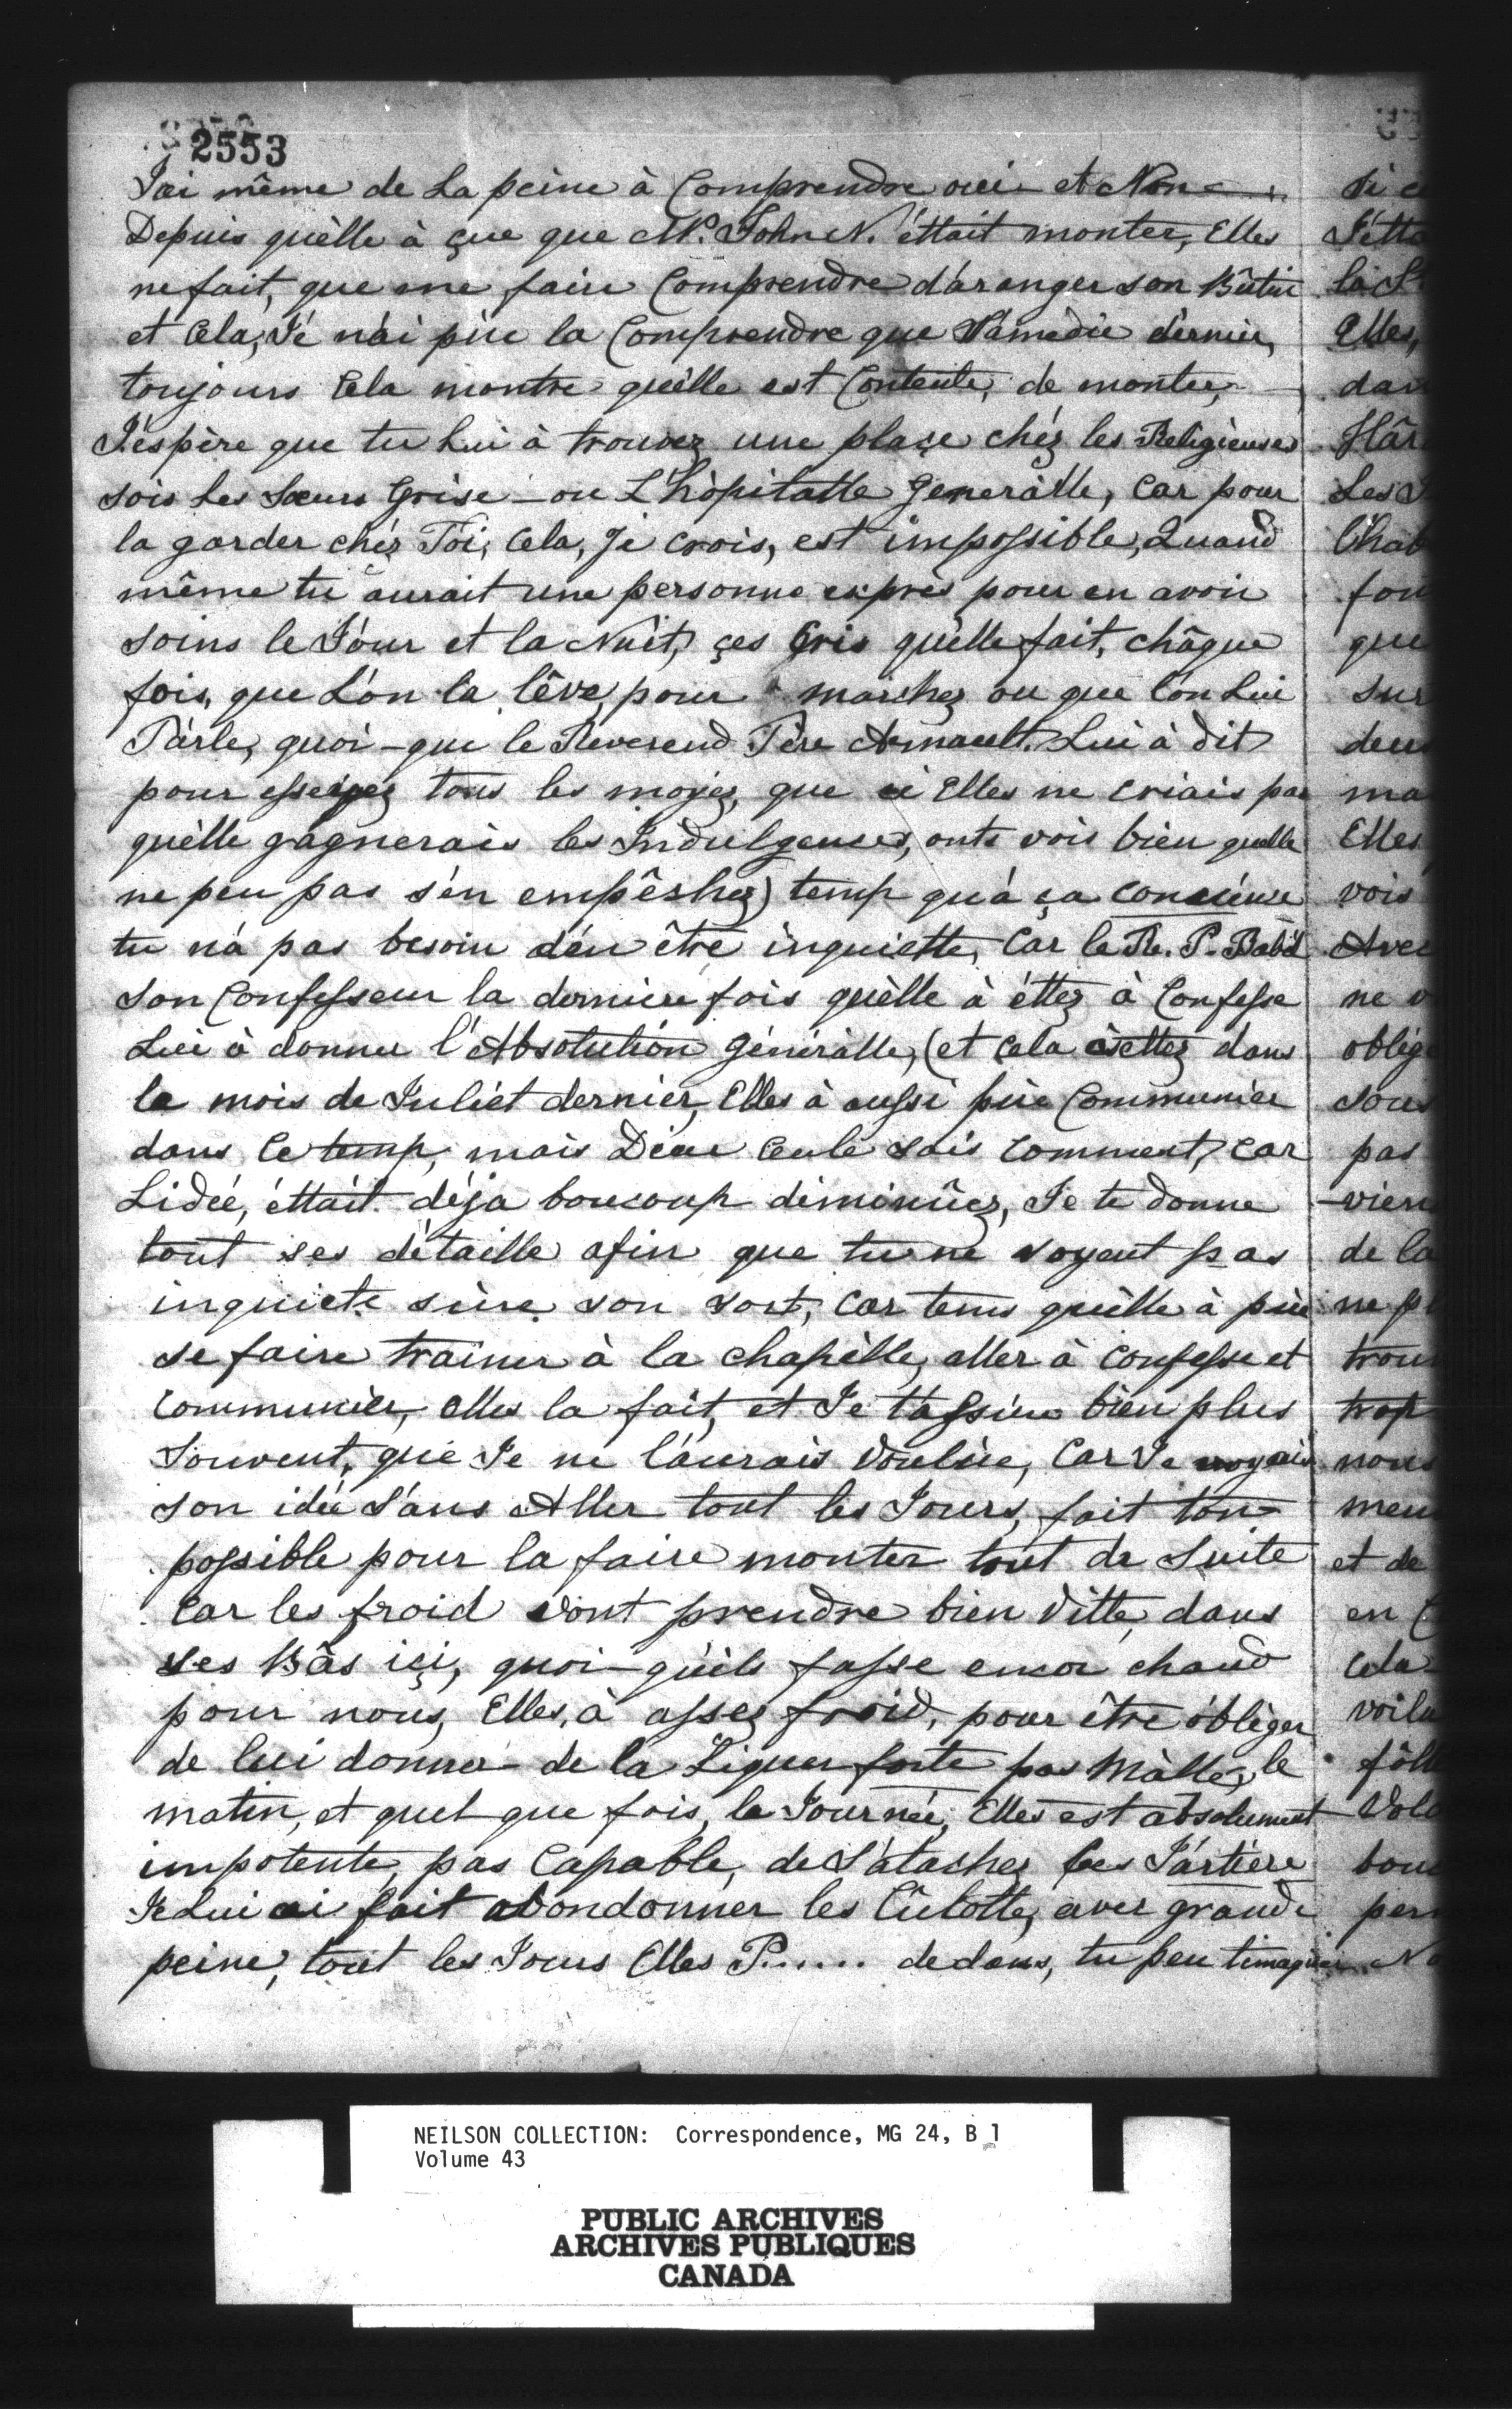 2553
J'ai même de La peine à Comprendre oui et Non
Depuis quèlle à çue que Mr. John N. éttait monter, Elles
ne fait, que me faire Comprendre d'áranger son Bûtin
et Cela, Jé nái pûe la Comprendre que Sámedie dernier,
toujours Cela montre quèlle est Contente, de monter,
J'éspère que tu Lui à trouvez une plaçe chéz les Religieuses
sois Les Sœurs Grise - ou L'hòpitalle Generàlle, Car pour
la garder chéz Toi, Cela, Je crois, est impossible, Quand
même tu áurait une personne exprès pour en avoir
soins le Jóur et la Nuit, çes Cris quèlle fait, châque
fois, que L'ón la lêve, pour marchez ou que l'ón Lui
Párle, quoi-que le Reverend Père Arnault. Lui à dit
pour esseiyez tous les moyez, que si Elles ne criais pas
quèlle gagnerais les Indulgences, onts vois bien quelle
ne peu pas s'én empêshez) temp qu'à ça Consience
tu n'á pas besoin d'én être inquiette, Car le R. P. Bab'd
son Confesseur la derniere fois quèlle à éttez à Confesse
Lui à donner l'Absolution Généràlle, (et Cela àsettez dans
le mois de Juliét dernier, Elles à aussi pûe Communier
dans Ce temp, mais Dieu Ceule sais Comment, Car
Lideé, éttait déja boucoup diminûez, Je te donne
tout ses détaille afin que tu ne soyent pas
inquiete sùre son sort, Car tems quèlle à pûe
se faire trainer à la chapèlle, aller à Confesse et
Communier, Elles la fait, et Je t'assure bien plus
Souvent, que Je ne l'áurais voulûe, Car Je voyais
son idée s'ans Aller tout les Jours, fait ton
possible pour la faire monter tout de Suite
Car les froid vont prendre bien Vitte, dans
Les Bâs içi, quoi-qúils fasse encor chaud
pour nous, Elles, à assez froid, pour être óbliger
de lui donner de la Liquer forte pas Màlle, le
matin, et quel que fois, la Journée, Elles est absolument
impotente, pas Capable, de S'átachez Ces Jártière
Je Lui ai fait abondonner les Cûlotte, avec grande
peine, tout les Jours Elles P...... dedans, tu peu timaginer
Elles,
que
Elles
vois
pas
de la
et de
NEILSON COLLECTION: Correspondence, MG 24, B 1
Volume 43
PUBLIC ARCHIVES
ARCHIVES PUBLIQUES
CANADA